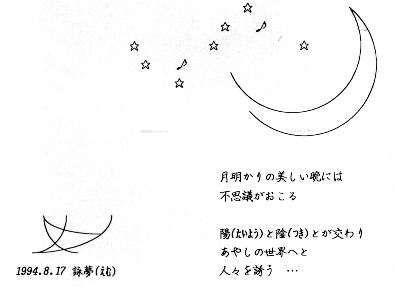 月明かりの美しい晩には
不思議がおこる
陽(たいよう)と陰(つき)とが交わり
あやしの世界へと
人々を誘う …
1994.8.17 詠夢(えむ)